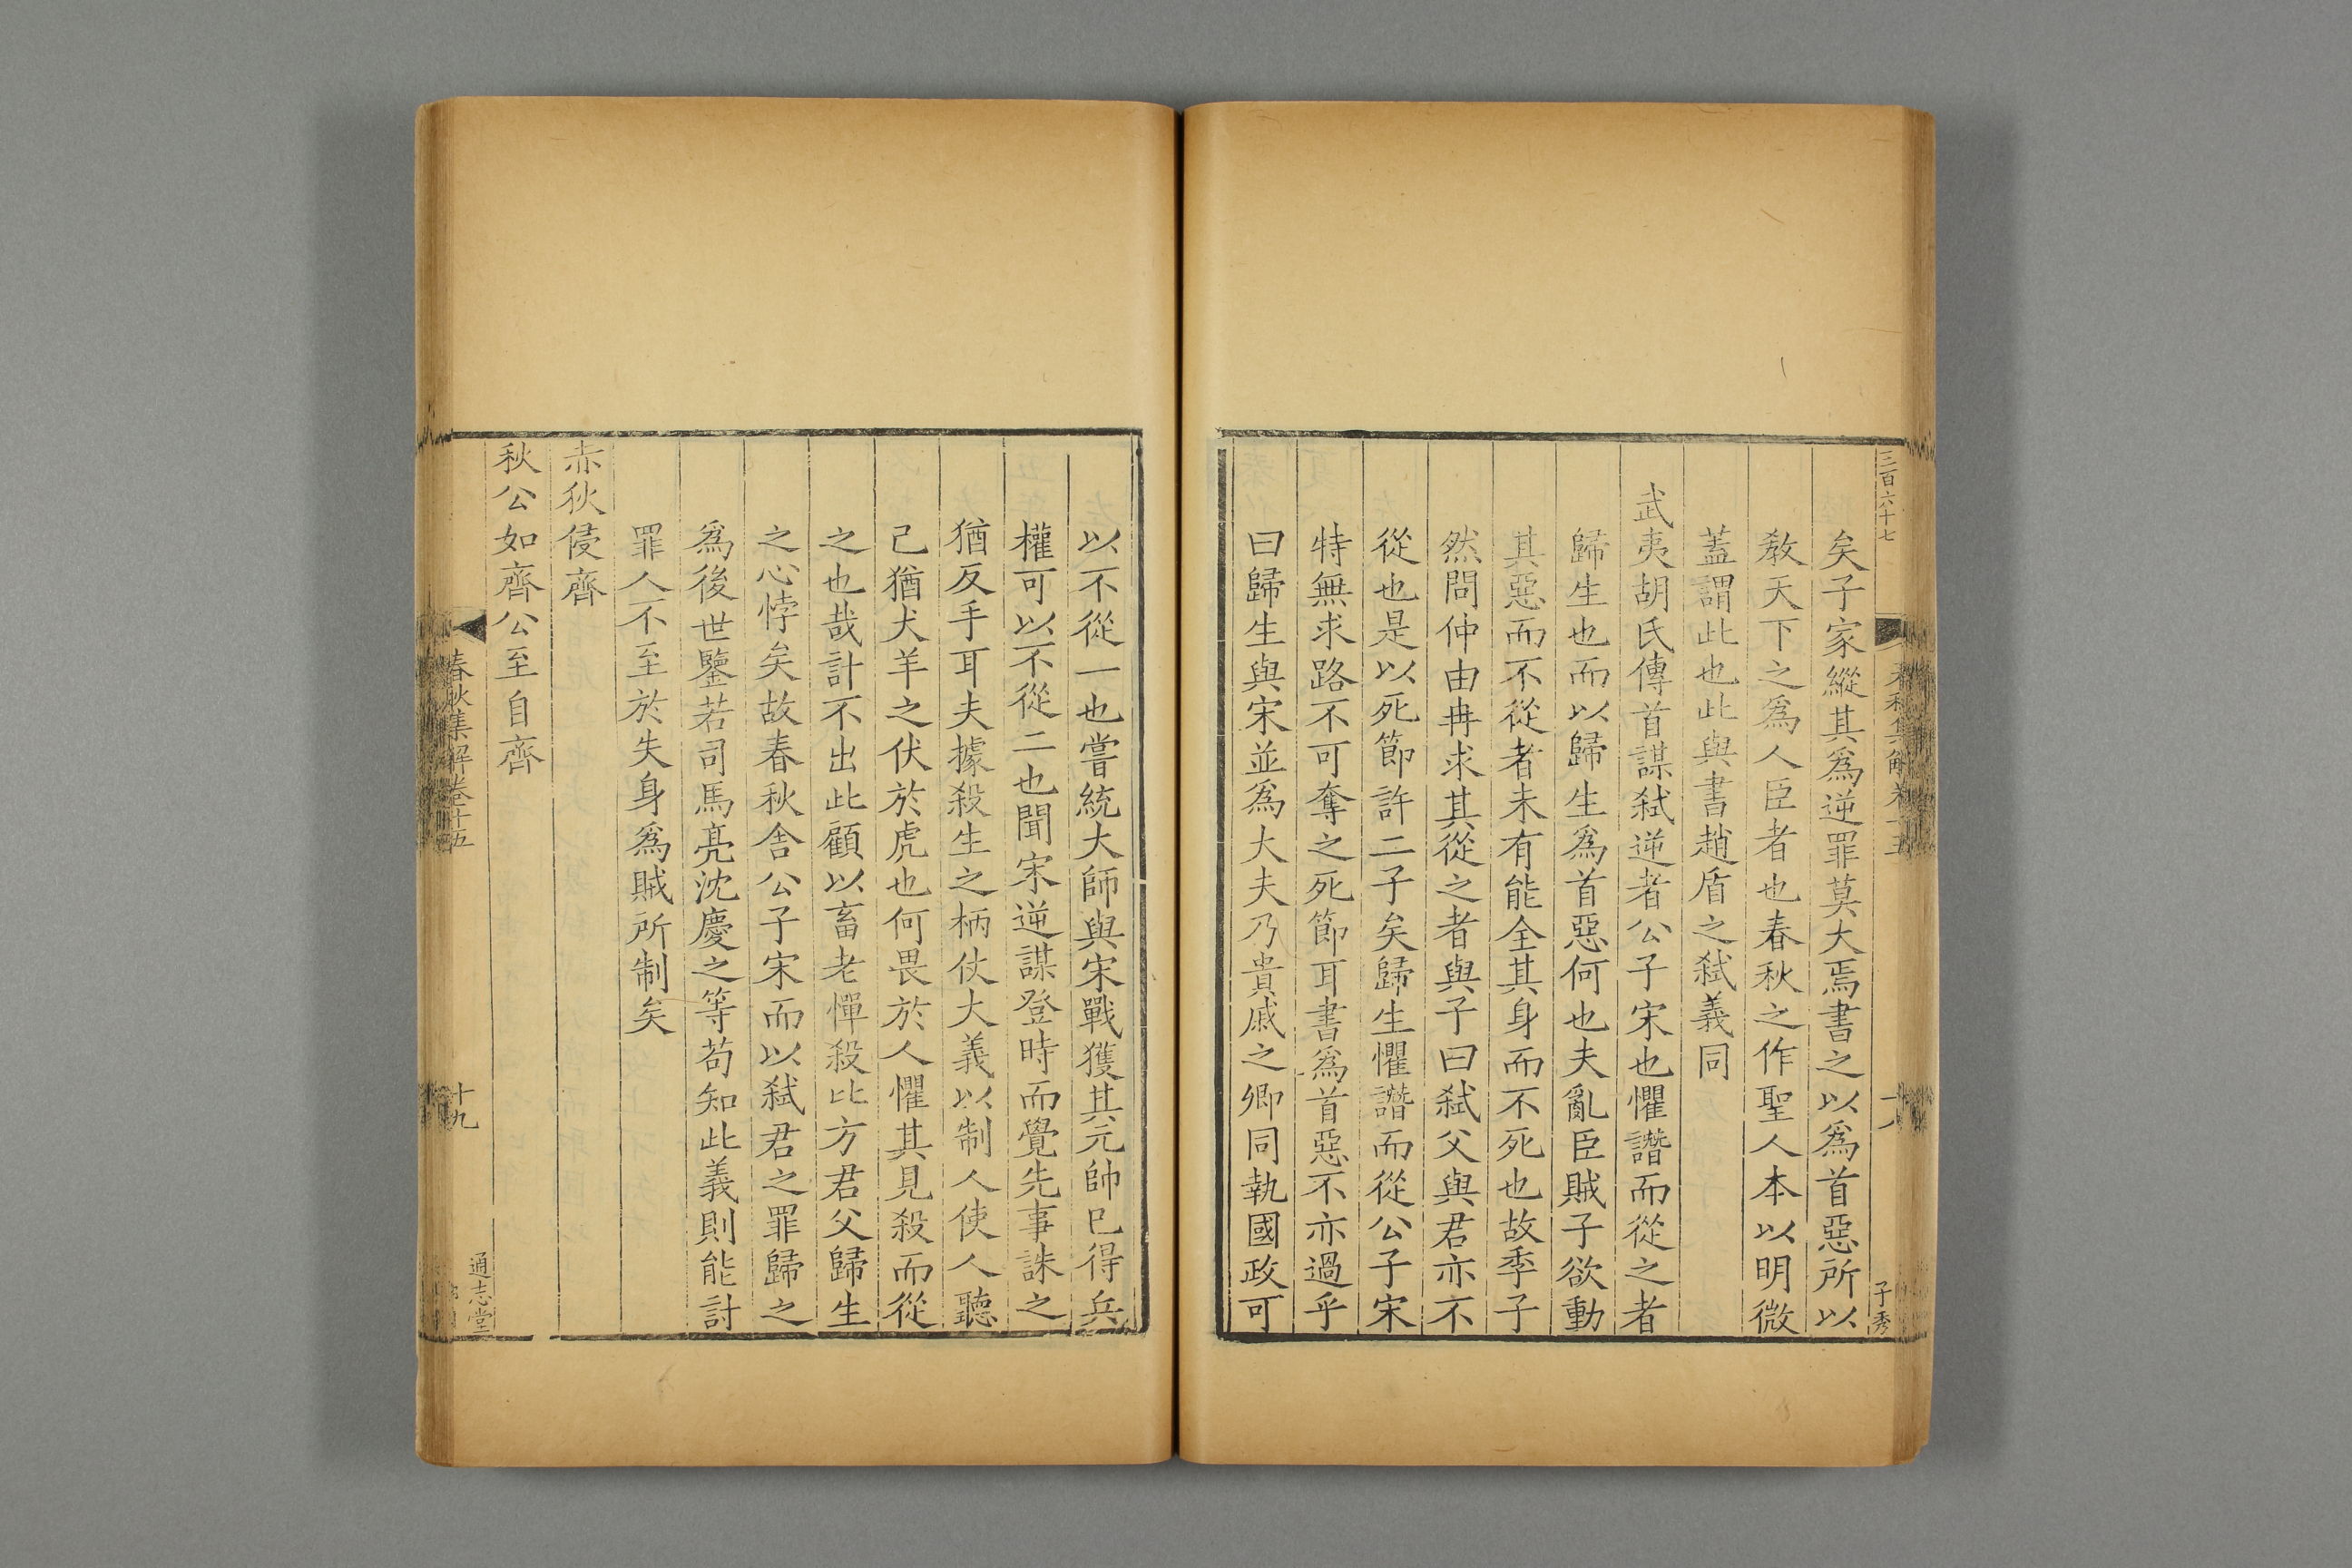 三百六十七
子秀
矣子家縱其為逆罪莫大焉書之以為首惡所以
教天下之為人臣者也春秋之作聖人本以明微
蓋謂此也此與書趙盾之弑義同
武夷胡氏傳首謀弑逆者公子宋也懼譖而從之者
歸生也而以歸生為首惡何也夫亂臣賊子欲動
其惡而不從者未有能全其身而不死也故季子
然問仲由冉求其從之者與子曰弑父與君亦不
從也是以死節許二子矣歸生懼譖而從公子宋
特無求路不可奪之死節耳書為首惡不亦過乎
曰歸生與宋並為大夫乃貴戚之卿同執國政可
以不從一也嘗統大師與宋戰獲其元帥已得兵
權可以不從二也聞宋逆謀登時而覺先事誅之
猶反手耳夫據殺生之柄仗大義以制人使人聽
己猶犬羊之伏於虎也何畏於人懼其見殺而從
之也哉計不出此顧以畜老憚殺比方君父歸生
之心悖矣故春秋舍公子宋而以弑君之罪歸之
為後世鑒若司馬亮沈慶之等苟知此義則能討
罪人不至於失身為賊所制矣
赤狄侵齊
秋公如齊公至自齊
春秋集解卷十五
十九
通志堂